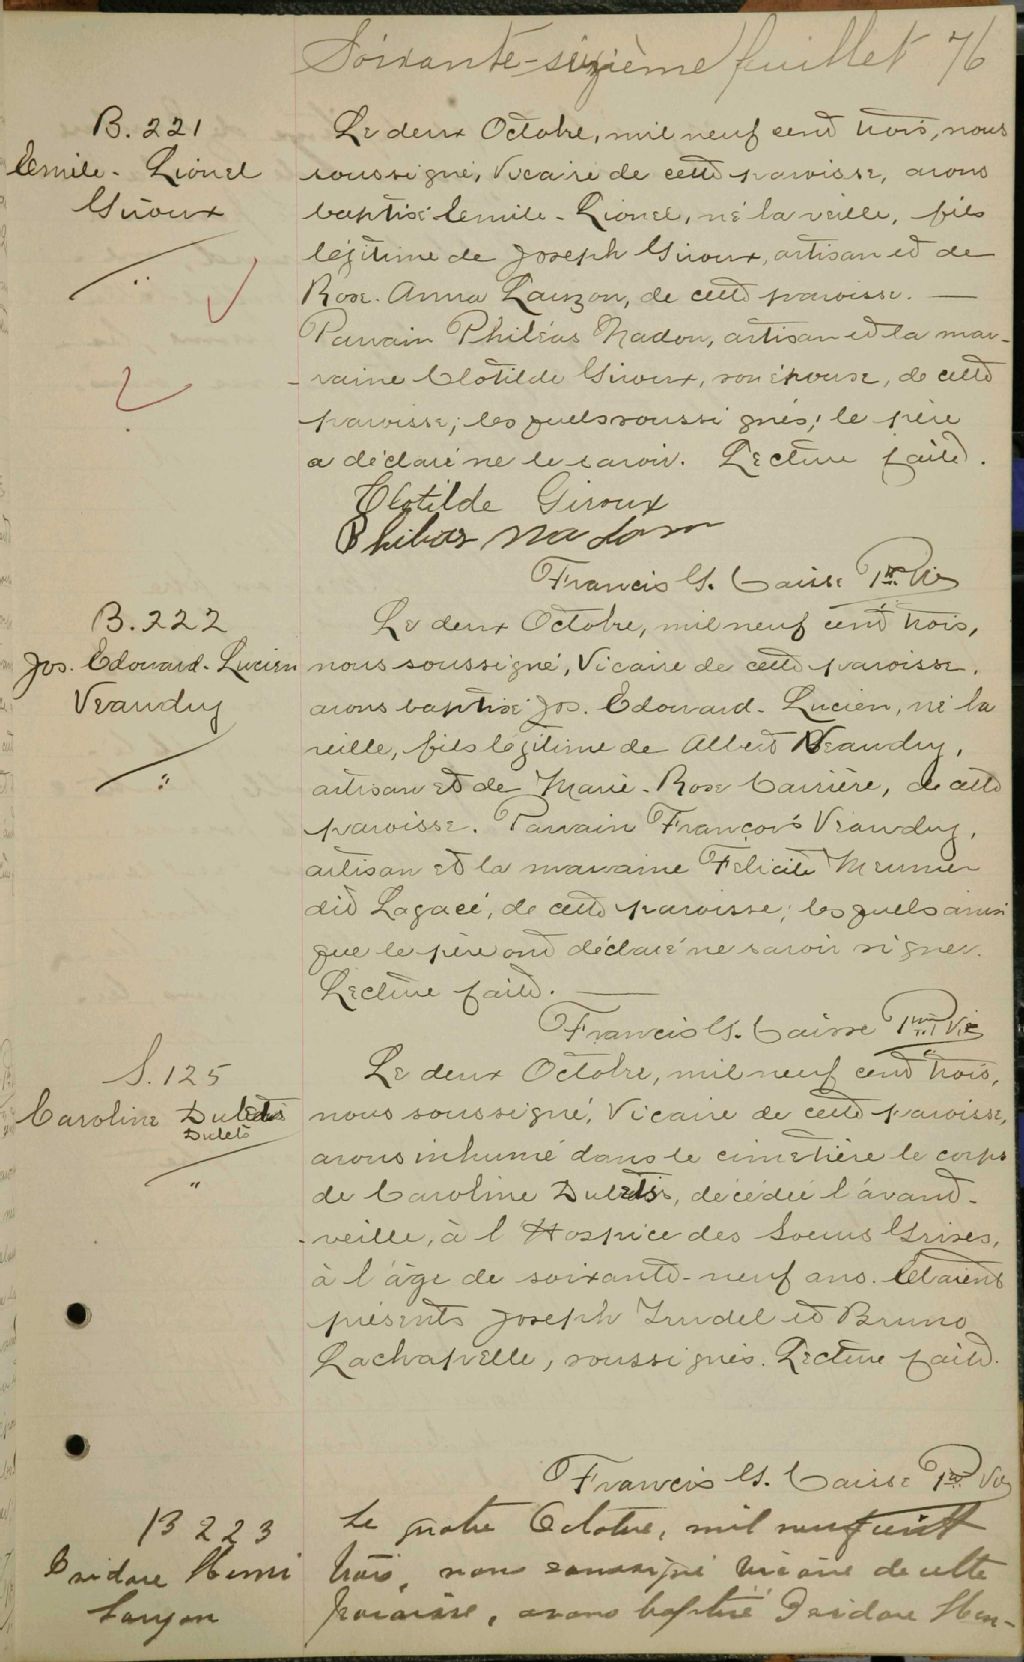 Soixante-sixième feuillet 76
B. 221
Emile - Lionel
Giroux
Le deux Octobre, mil neuf cent trois, nous
soussigné, Vicaire de cette paroisse, avons
baptisé Emile - Lionel, né la veille, fils
légitime de Joseph Giroux, artisan et de
Rose. Anna Lauzon, de cette paroisse. —
Parrain Philéas Nadon, artisan et la mar-
-raine Clotilde Giroux, son épouse, de cette
paroisse; lesquels soussignés; le père
a déclaré ne le savoir. Lecture faite.
Clotilde Giroux
Philias Nadon
Francis G. Caisse Ptre Vic
B. 222
Jos. Edouard. Lucien
Veaudry
Le deux Octobre, mil neuf cent trois,
nous soussigné, Vicaire de cette paroisse,
avons baptisé Jos. Edouard. Lucien, né la
veille, fils légitime de Albert Veaudry,
artisan et de Marie. Rose Carrière, de cette
paroisse. Parrain François Veaudry,
artisan et la marraine Félicité Meunier
dit Lagacé, de cette paroisse; lesquels ainsi
que le père ont déclaré ne savoir signer.
Lecture faite. —
Francis G. Caisse Ptre Vic
S. 125
Caroline
Le deux Octobre, mil neuf cent trois,
nous soussigné, Vicaire de cette paroisse,
avons inhumé dans le cimetière le corps
de Caroline décédée l'avant-
-veille, à l'Hospice des Soeurs Grises,
à l'âge de soixante-neuf ans. Etaient
présents Joseph Trudel et Bruno
Lachapelle, soussignés. Lecture faite.
Francis G. Caisse Ptre Vic
B 223
Isidore Henri
Lauzon
Le quatre Octobre, mil neuf cent
trois, nous soussigné vicaire de cette
paroisse, avons baptisé Isidore Hen-